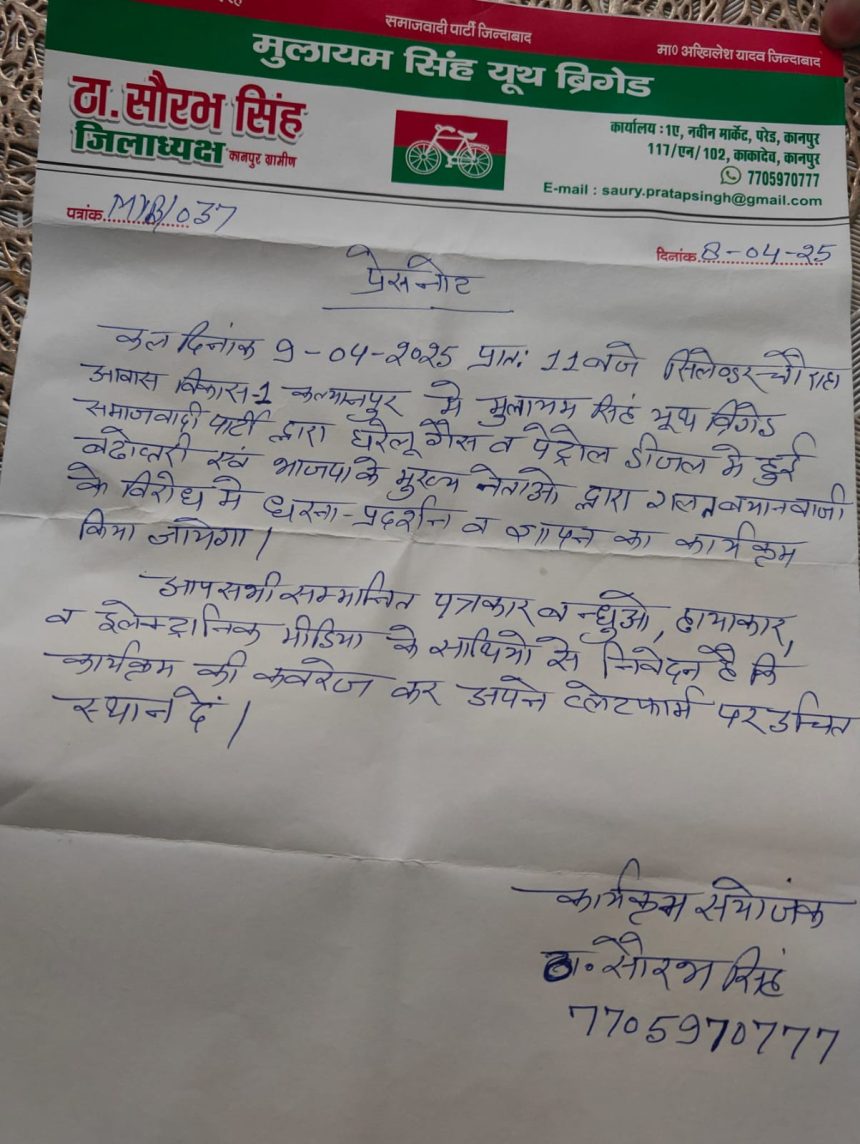 समाजवादी पार्टी जिन्दाबाद
मा० अखिलेश यादव जिन्दाबाद
मुलायम सिंह यूथ ब्रिगेड
ठा. सौरभ सिंह
जिलाध्यक्ष कानपुर ग्रामीण
कार्यालय : 1ए, नवीन मार्केट, परेड, कानपुर
117/एन/102, काकादेव, कानपुर
7705970777
E-mail : saury.pratapsingh@gmail.com
पत्रांक MYB/037
दिनांक 8-04-25
प्रेसनोट
कल दिनांक 9-04-2025 प्रात: 11 बजे सिलेण्डर चौराहा
आवास विकास-1 कल्यानपुर मे मुलायम सिहं यूथ ब्रिगेड
समाजवादी पार्टी द्वारा घरेलू गैस व पेट्रोल डीजल मे हुई
बढोत्तरी एवं भाजपा के मुख्य नेताओ द्वारा गलत बयानबाजी
के विरोध मे धरना-प्रदर्शन व ज्ञापन का कार्यक्रम
किया जायेगा।
आप सभी सम्मानित पत्रकार बन्धुओ, छायाकार,
व इलेक्ट्रानिक मीडिया के साथियो से निवेदन है कि
कार्यक्रम की कवरेज कर अपने प्लेटफार्म पर उचित
स्थान दें।
कार्यक्रम संयोजक
ठा. सौरभ सिहं
7705970777